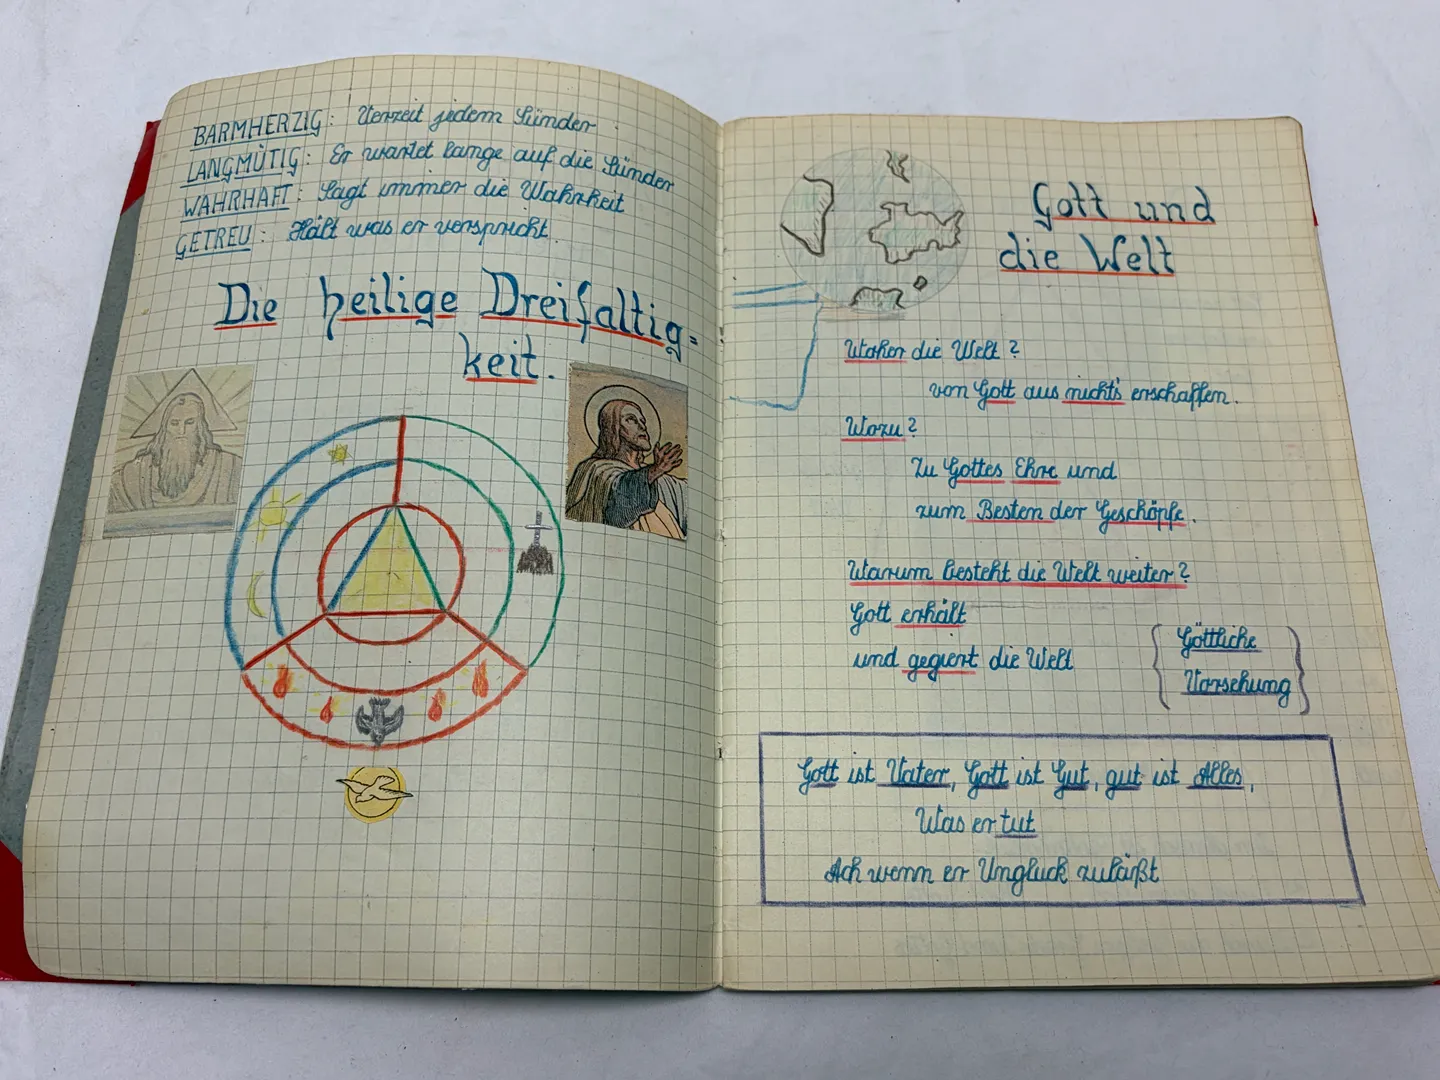 BARMHERZIG: Verzeit jedem Sünder.
LANGMÜTIG: Er wartet lange auf die Sünder
WAHRHAFT: Sagt immer die Wahrheit
GETREU: Hält was er verspricht.
Die heilige Dreifaltig=
keit.
Gott und
die Welt
Woher die Welt?
von Gott aus nichts erschaffen.
Wozu?
Zu Gottes Ehre und
zum Besten der Geschöpfe.
Warum besteht die Welt weiter?
Gott erhält
und regiert die Welt
{ Göttliche
Vorsehung }
Gott ist Vater, Gott ist Gut, gut ist Alles,
Was er tut
Ach wenn er Unglück zuläßt